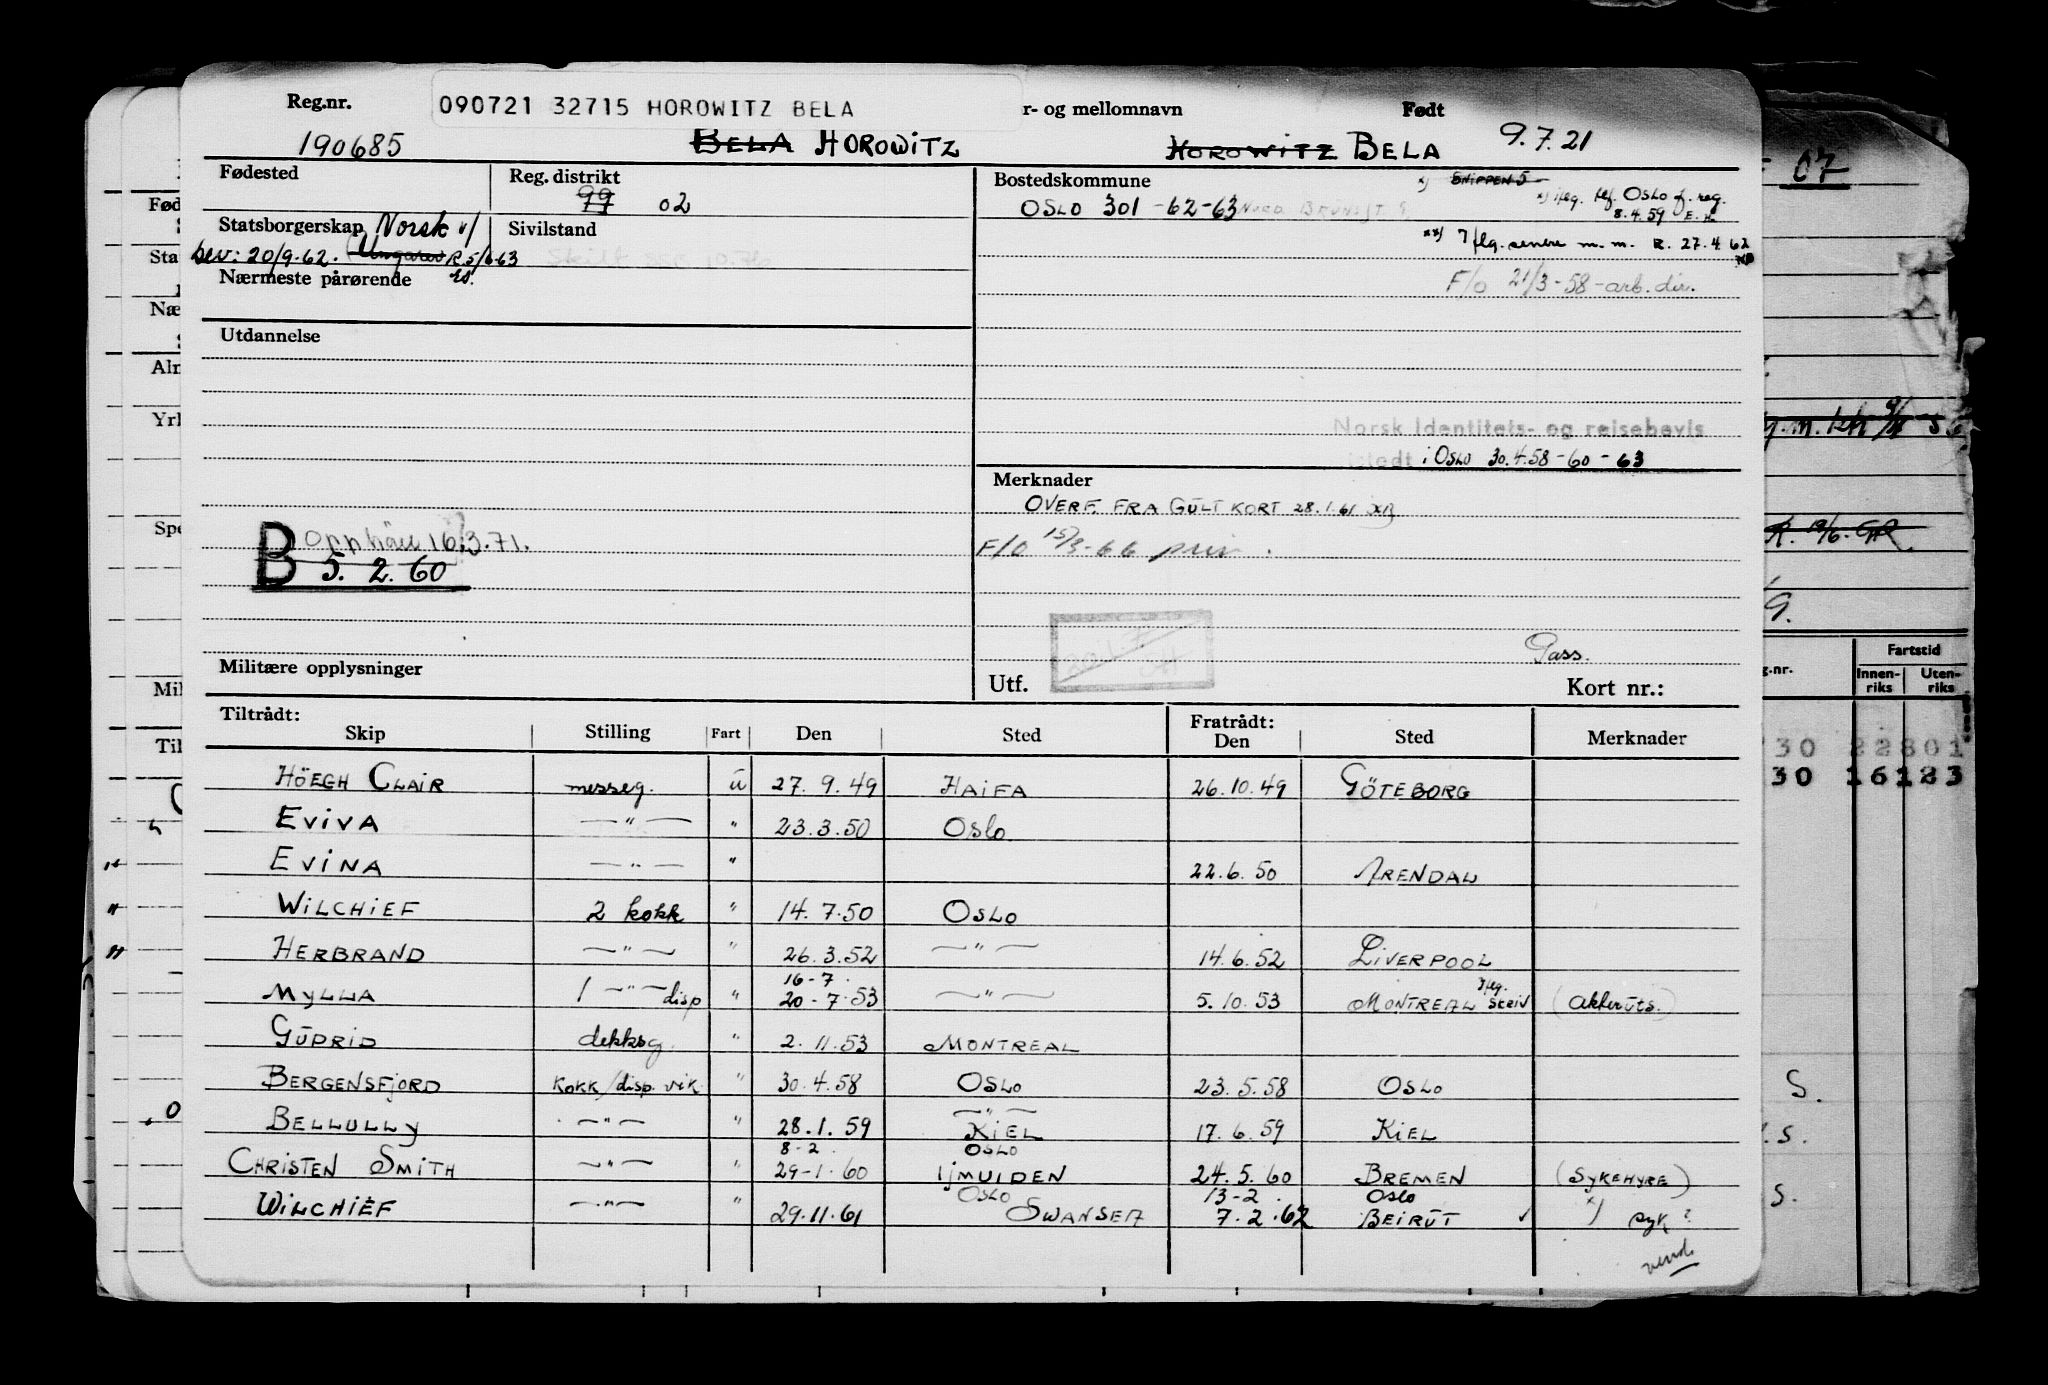 Reg.nr. 090721 32715 HOROWITZ BELA r- og mellomnavn Født
190685 BELA HOROWITZ HOROWITZ BELA 9.7.21
Fødested Reg. distrikt Bostedskommune
99 02 OSLO 301 -62-63
x) SNIPPEN 5
x) iflg. tlf. OSLO f. reg.
8.4.59
Statsborgerskap Norsk Sivilstand
bev: 20/9.62. Ungarsk
xx) Iflg. senere m. m. R. 27.4 62
Nærmeste pårørende
F/o 21/3-58-arb.dir.
Utdannelse
Norsk Identitets- og reisebevis
i OSLO 30.4.58-60-63
Merknader
OVERF. FRA GULT KORT 28.1.61
F/O 15/3-66 priv.
B Opphäv 16/3.71.
5. 2. 60
Pass.
Militære opplysninger Utf. Kort nr.:
Tiltrådt: Fratrådt:
Skip Stilling Fart Den Sted Den Sted Merknader
HÖEGH CLAIR messeg. ü 27. 9. 49 HAIFA 26.10.49 GÖTEBORG
EVIVA —"— " 23.3.50 OSLO
EVINA —"— " 22.6.50 ARENDAL
WILCHIEF 2 kokk " 14.7.50 OSLO
HERBRAND —"— " 26.3.52 —"— 14.6.52 LIVERPOOL
16-7
MYLLA 1 —"— disp " 20-7-53 —"— 5.10.53 MONTREAL Iflg. skriv (Akterüts.)
GÜDRID dekksg. " 2.11.53 MONTREAL
BERGENSFJORD KOKK/disp. vik " 30.4.58 OSLO 23.5.58 OSLO
—"—
BELLULLY —"— " 28.1.59 KIEL 17.6.59 KIEL
8-2 OSLO
CHRISTEN SMITH —"— " 29-1-60 IJMUIDEN 24.5.60 BREMEN (SYKEHYRE)
OSLO 13-2 OSLO x)
WILCHIEF —"— " 29.11.61 SWANSEA 7.2.62 BEIRÜT syk?
vend.
07
Fød
Sta
Næ
Alm
Yrk
Spe
Mil
Til
g.-nr. Fartstid
Innen-riks Uten-riks
30 22801
30 16123
S.
S.
S.